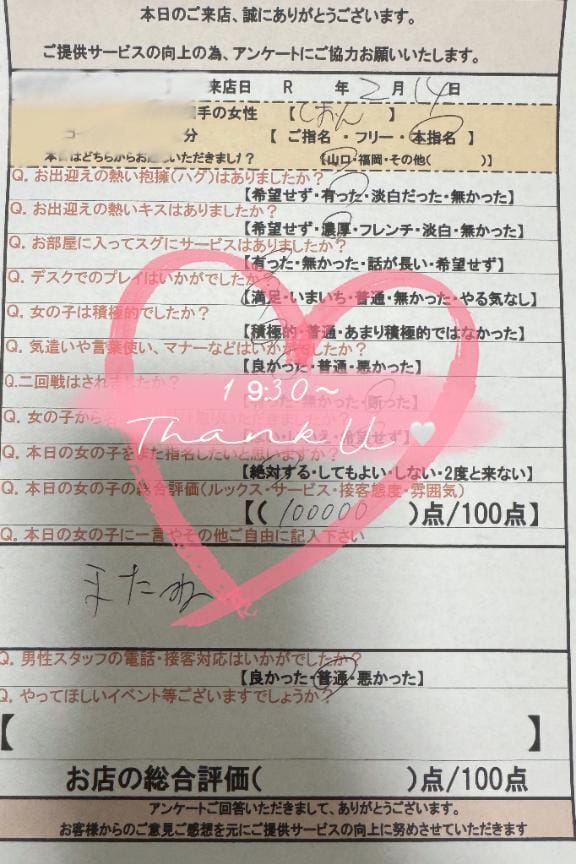 本日のご来店、誠にありがとうございます。
ご提供サービスの向上の為、アンケートにご協力お願いいたします。
来店日 R 年2月14日
手の女性 【しおん】
分 【 ご指名・フリー・本指名 】
本日はどちらからお越しいただきました? 【山口・福岡・その他( )】
Q. お出迎えの熱い抱擁(ハグ)はありましたか?
【希望せず・有った・淡白だった・無かった】
Q. お出迎えの熱いキスはありましたか?
【希望せず・濃厚・フレンチ・淡白・無かった】
Q. お部屋に入ってスグにサービスはありましたか?
【有った・無かった・話が長い・希望せず】
Q. デスクでのプレイはいかがでしたか?
【満足・いまいち・普通・無かった・やる気なし】
Q. 女の子は積極的でしたか?
【積極的・普通・あまり積極的ではなかった】
Q. 気遣いや言葉使い、マナーなどはいかがでしたか?
【良かった・普通・悪かった】
Q.二回戦はされましたか?
19:30~
【有った・無かった・断った】
Q. 女の子から
Thank U
希望せず】
Q. 本日の女の子をまた指名したいと思いますか?
【絶対する・してもよい・しない・2度と来ない】
Q. 本日の女の子の総合評価(ルックス・サービス・接客態度・雰囲気)
【( 100000 )点/100点】
Q. 本日の女の子に一言やその他ご自由に記入下さい
またね
Q. 男性スタッフの電話・接客対応はいかがでしたか?
【良かった・普通・悪かった】
Q. やってほしいイベント等ございますでしょうか?
【 】
お店の総合評価( )点/100点
アンケートご回答いただきまして、ありがとうございます。
お客様からのご意見ご感想を元にご提供サービスの向上に努めさせていただきます